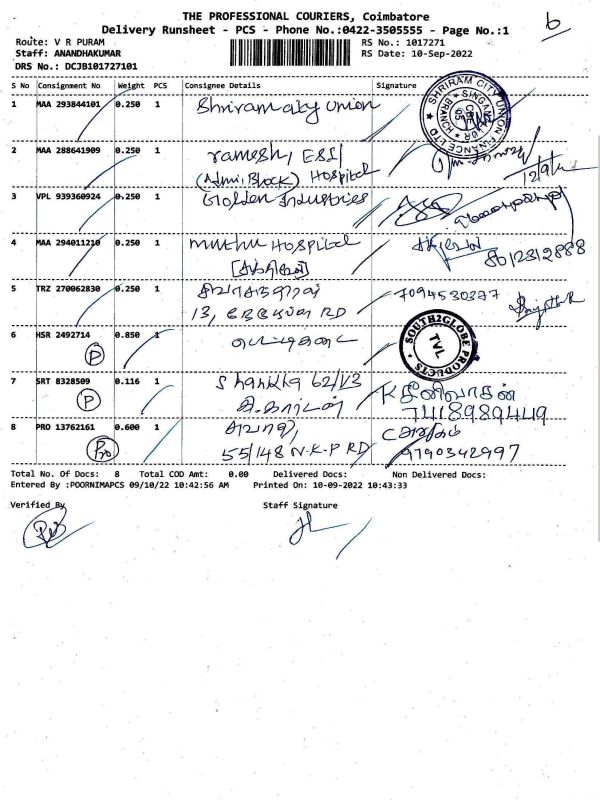 THE PROFESSIONAL COURIERS, Coimbatore
Delivery Runsheet - PCS - Phone No.:0422-3505555 - Page No.:1
6
Route: V R PURAM
RS No.: 1017271
Staff: ANANDHAKUMAR
RS Date: 10-Sep-2022
DRS No.: DCJB101727101
S No Consignment No Weight PCS Consignee Details Signature
1 MAA 293844101 0.250 1 Shriram city Union
SHRIRAM CITY UNION FINANCE LTD
2 MAA 288641909 0.250 1 ramesh, ESI
(Admi, Block) Hospital
12/9/22
3 VPL 939360924 0.250 1 Golden Industries
4 MAA 294011210 0.250 1 muthu HOSPITAL
8012312888
5 TRZ 270062830 0.250 1
13, RD
7094530377
6 HSR 2492714 0.850 1
P
SOUTH2GLOBE PRODUCTS
TVL
7 SRT 8328509 0.116 1 Shanika 62/V3
P
K சீனிவாசன்
7418989449
8 PRO 13762161 0.600 1
Pro
55/148 N.K.P RD
9790342997
Total No. Of Docs: 8 Total COD Amt: 0.00 Delivered Docs: Non Delivered Docs:
Entered By :POORNIMAPCS 09/10/22 10:42:56 AM Printed On: 10-09-2022 10:43:33
Verified By
Staff Signature